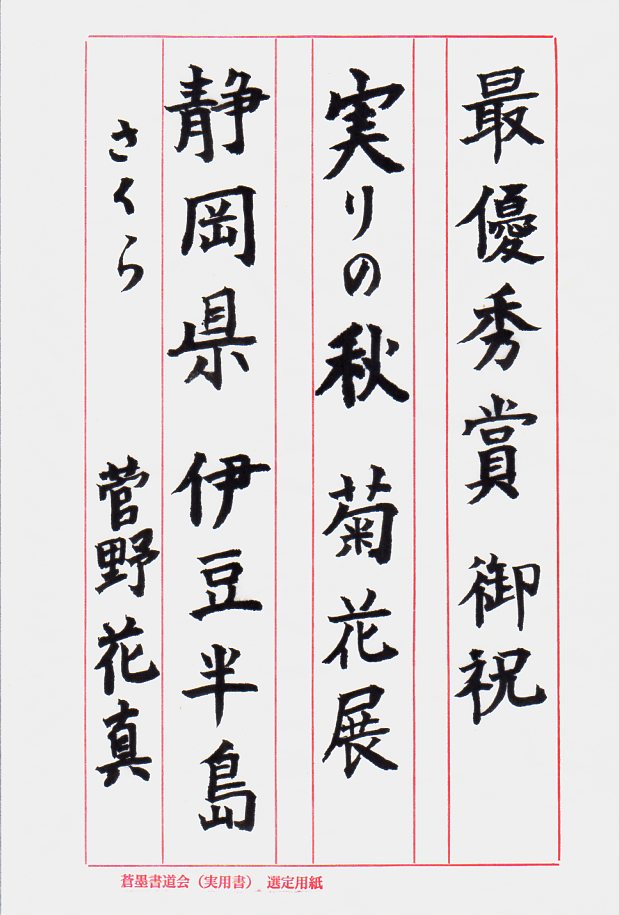 最優秀賞 御祝
実りの秋 菊花展
静岡県 伊豆半島
さくら 菅野花真
蒼墨書道会（実用書） 選定用紙